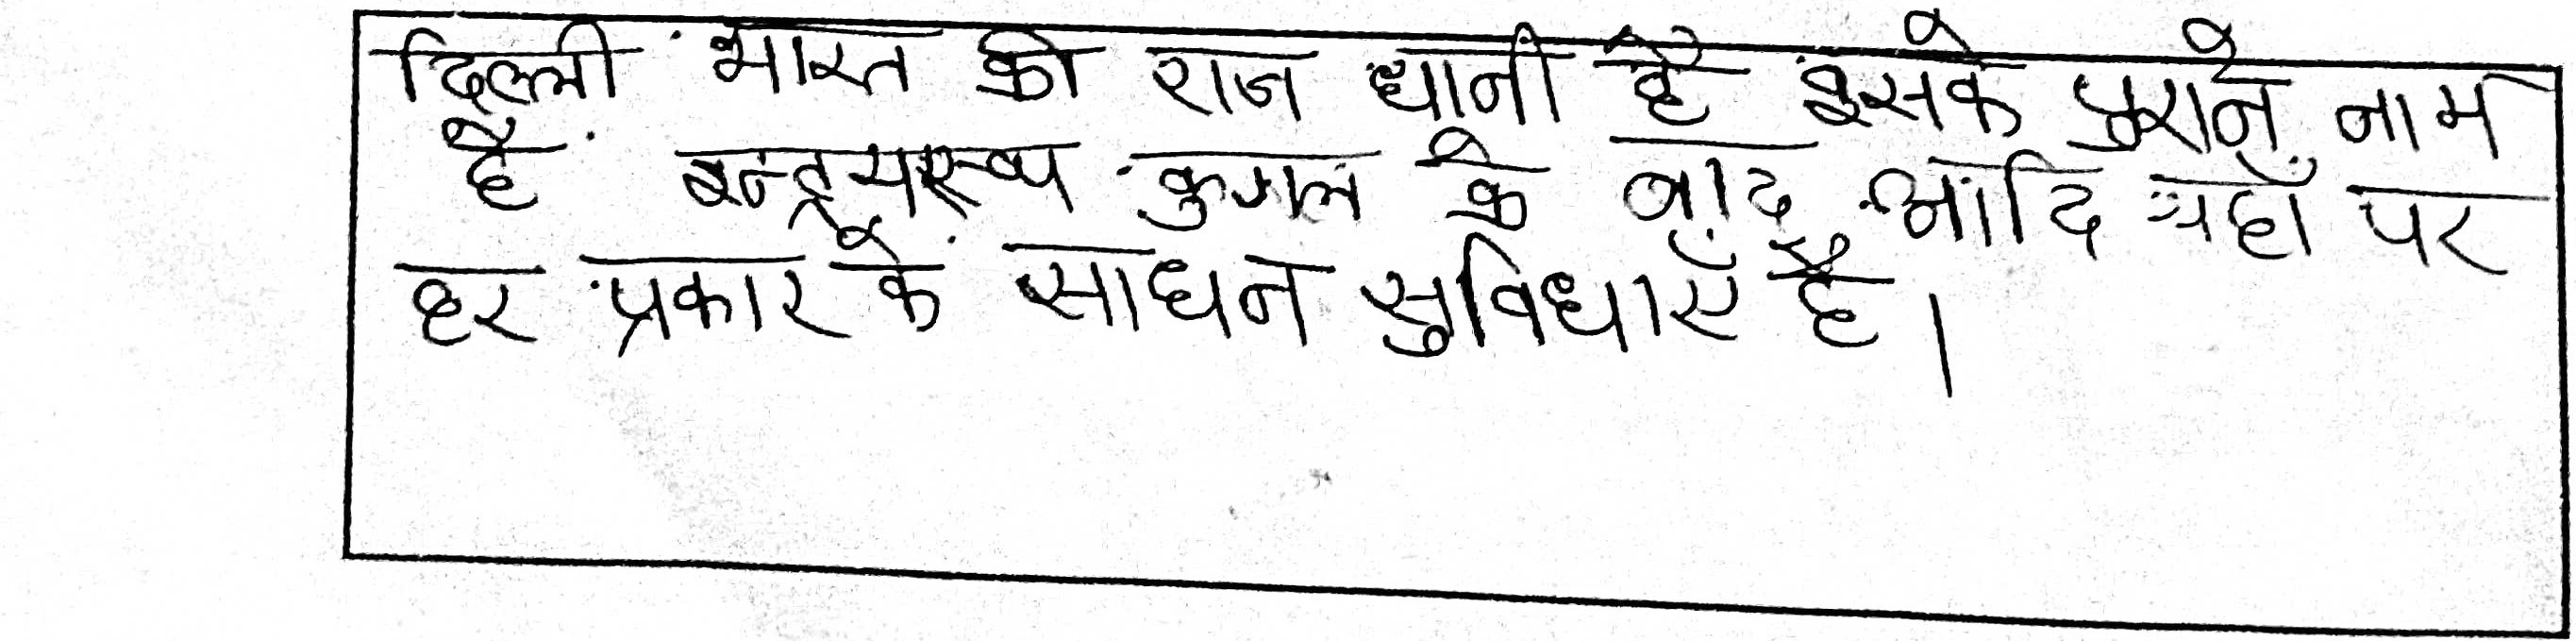 दिल्ली भारत की राज धानी है इसके पुराने नाम
है इन्द्रप्रस्थ के बाद आदि यहाँ पर
हर प्रकार के साधन सुविधाएँ है।